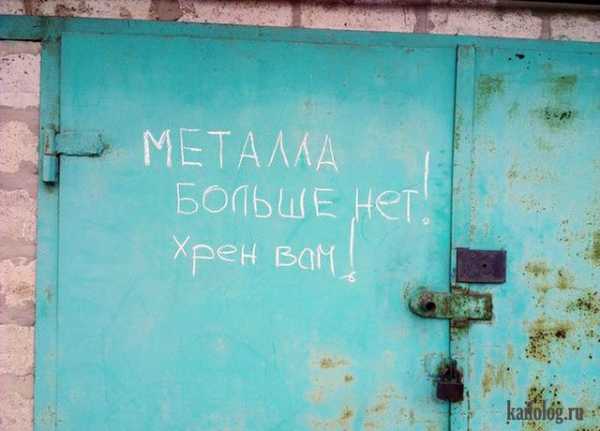 МЕТАЛЛА
БОЛЬШЕ НЕТ!
ХРЕН ВАМ!
kaifolog.ru